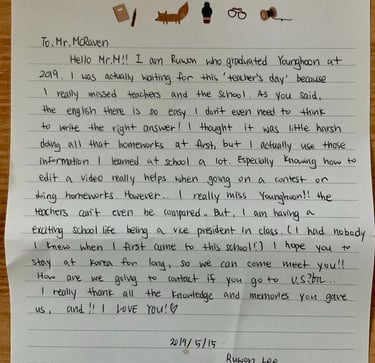 To, Mr. McRaven
Hello Mr.M!! I am Ruwon who graduated Younghoon at
2019. I was actually waiting for this 'teacher's day' because
I really missed teachers and the school. As you said,
the english there is so easy I don't even need to think
to write the right answer! I thought it was little harsh
doing all that homeworks at first, but I actually use those
information I learned at school a lot. Especially knowing how to
edit a video really helps when going on a contest or
doing homeworks. However... I really miss Younghoon!! the
teachers can't even be compared. But, I am having a
exciting school life being a vice president in class. (I had nobody
I knew when I first came to this school!) I hope you to
stay at Korea for long, so we can come meet you!!
How are we going to contact if you go to U.S?
I really thank all the knowledge and memories you gave
us, and!! I LOVE YOU!♡
2019/5/15.
Ruwon Lee